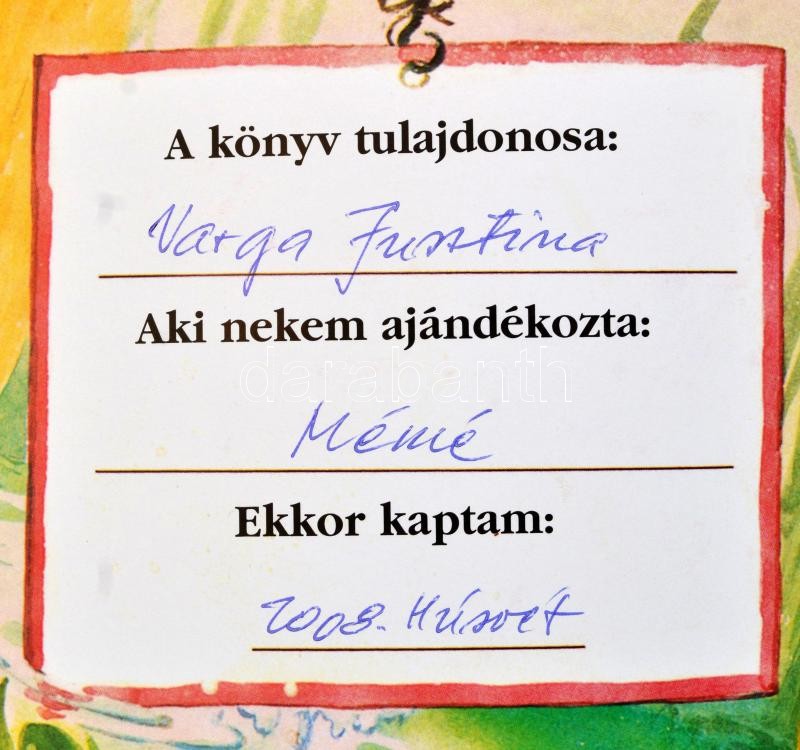 A könyv tulajdonosa:
Varga Jusztina
Aki nekem ajándékozta:
darabanth
Mémé
Ekkor kaptam:
2008. Húsvét